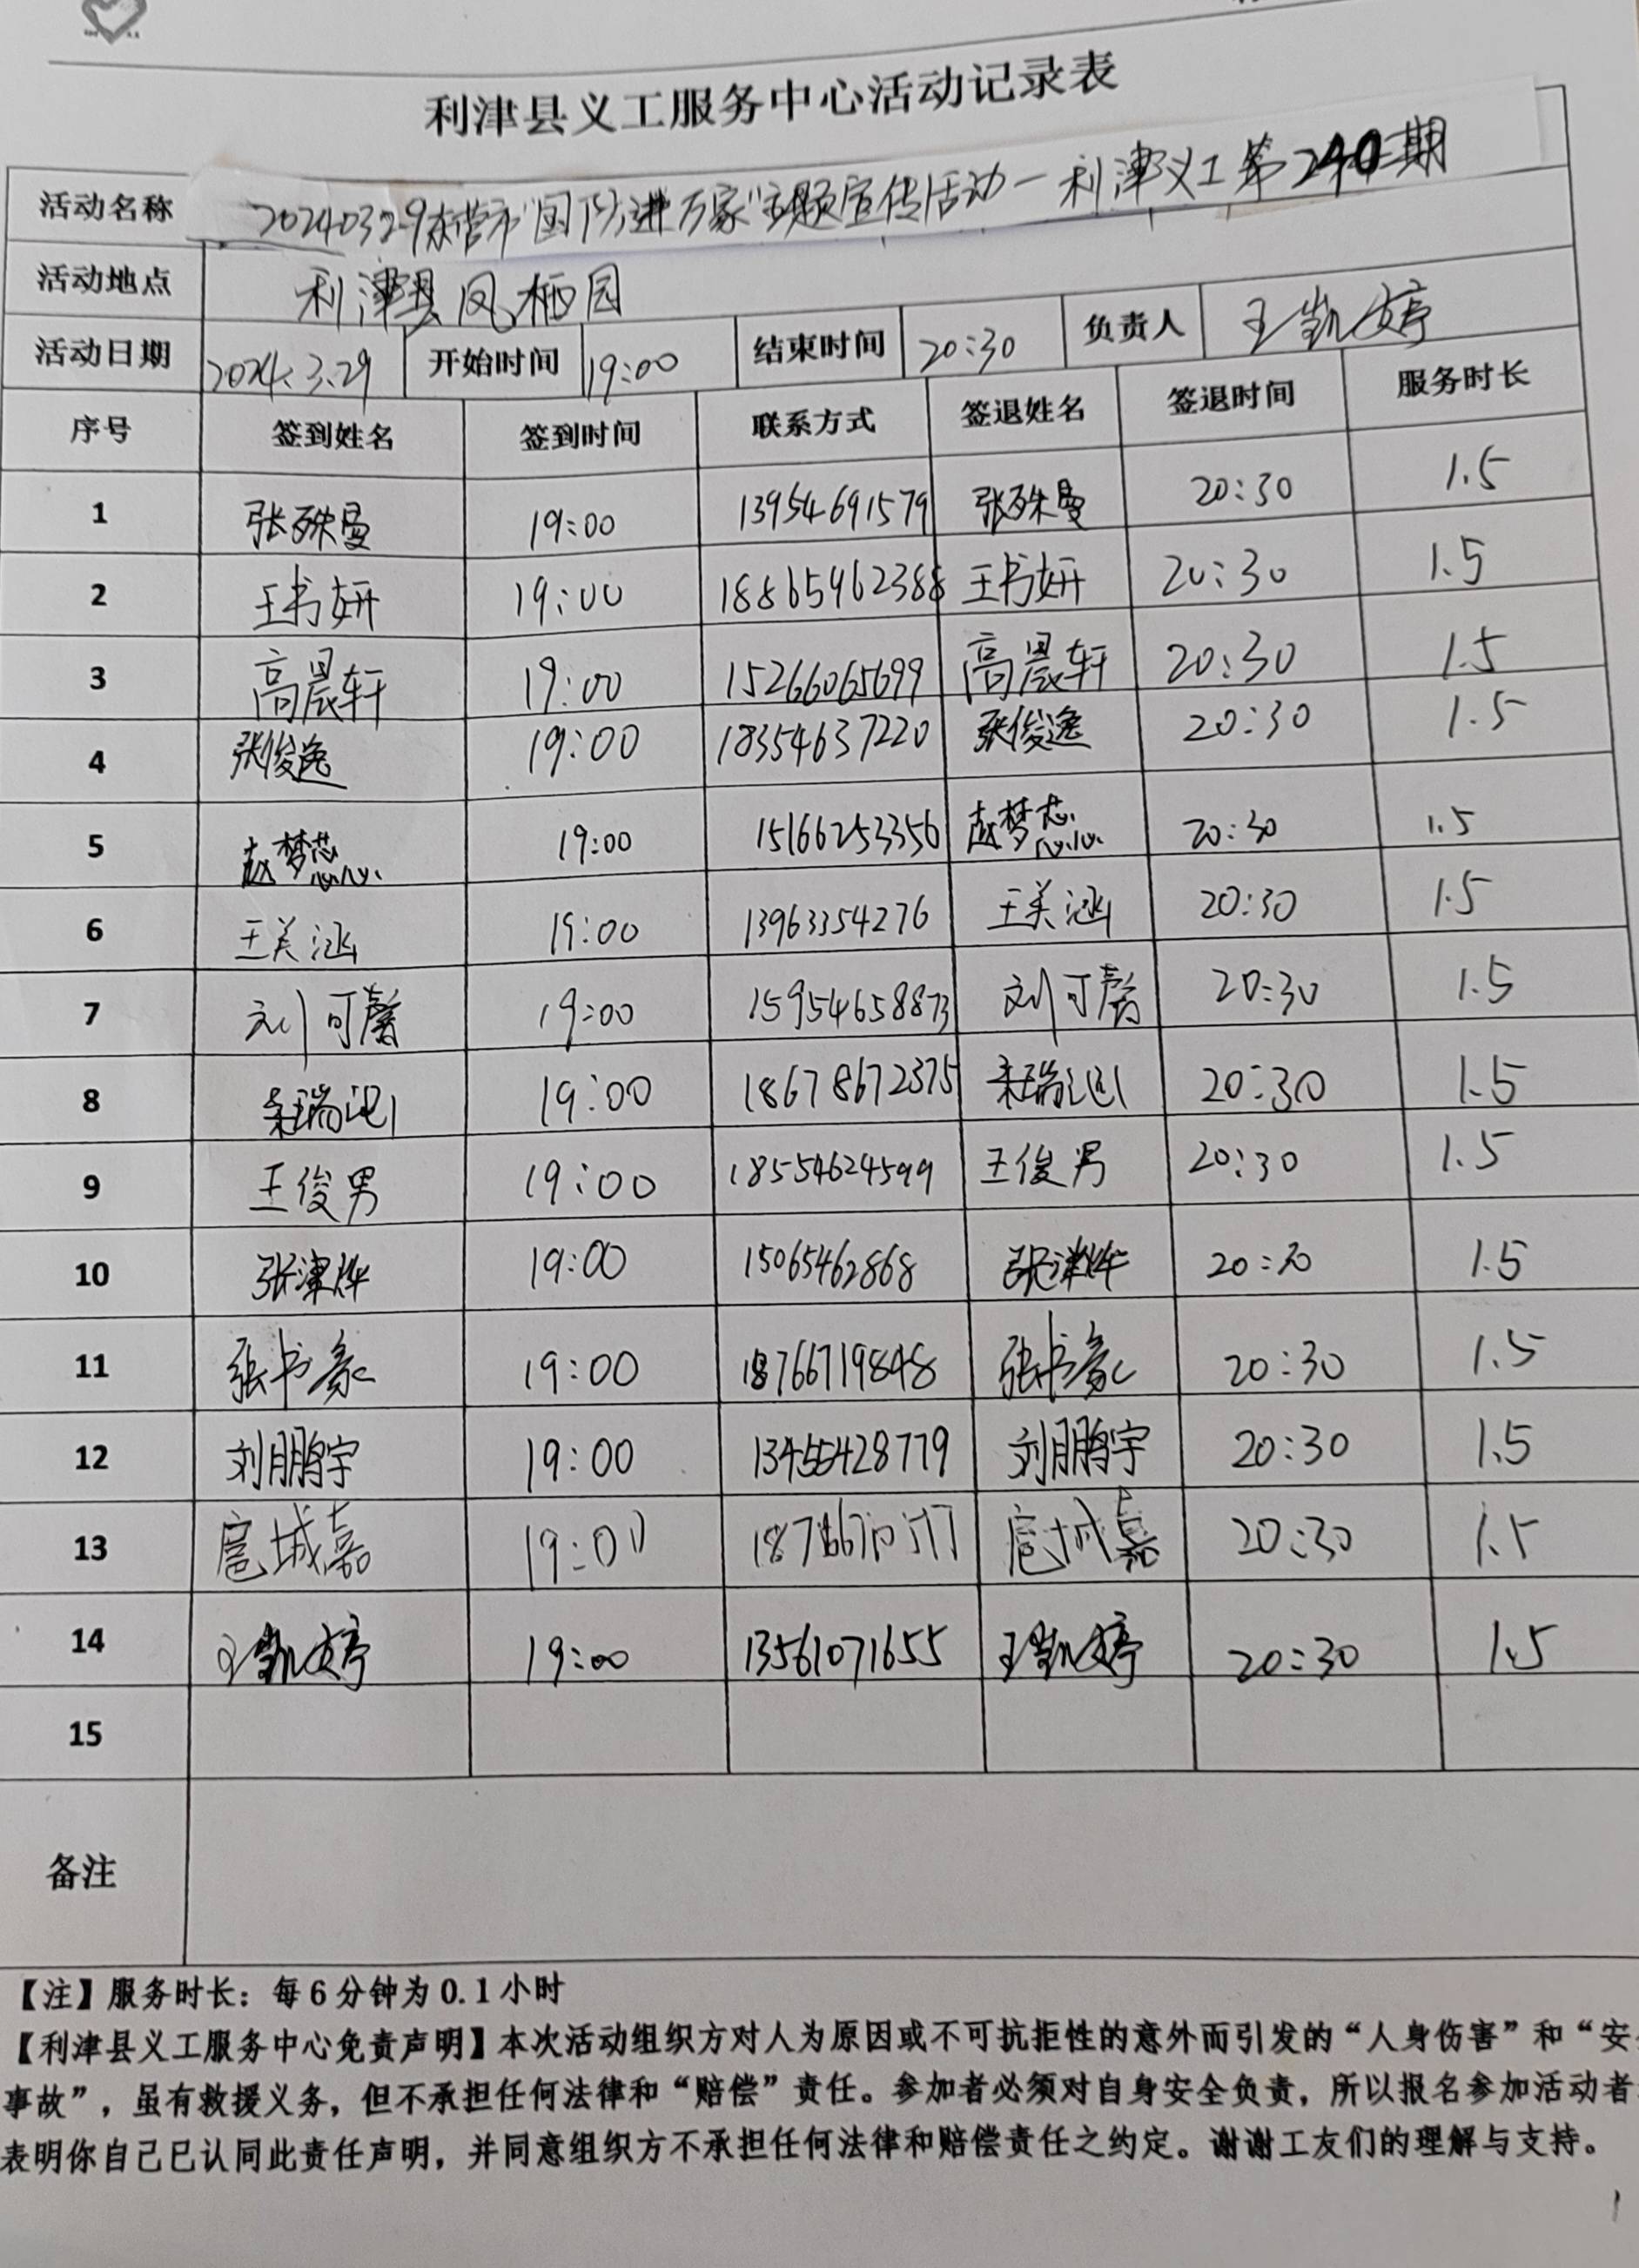 利津县义工服务中心活动记录表
活动名称 20240329东营市"国防进万家"主题宣传活动—利津义工第240期
活动地点 利津县凤栖园
活动日期 2024.3.29 开始时间 19:00 结束时间 20:30 负责人 王凯婷
序号 签到姓名 签到时间 联系方式 签退姓名 签退时间 服务时长
1 张殊曼 19:00 13954691579 张殊曼 20:30 1.5
2 王书妍 19:00 18865962388 王书妍 20:30 1.5
3 高晨轩 19:00 15266065699 高晨轩 20:30 1.5
4 张俊逸 19:00 18354637220 张俊逸 20:30 1.5
5 赵梦蕊 19:00 15166253356 赵梦蕊 20:30 1.5
6 王美涵 19:00 13963354276 王美涵 20:30 1.5
7 刘可馨 19:00 15954658873 刘可馨 20:30 1.5
8 19:00 18678672375 20:30 1.5
9 王俊男 19:00 18554624599 王俊男 20:30 1.5
10 张津烨 19:00 15065462868 张津烨 20:30 1.5
11 张书豪 19:00 18766719848 张书豪 20:30 1.5
12 刘鹏宇 19:00 13455428779 刘鹏宇 20:30 1.5
13 扈城嘉 19:00 扈城嘉 20:30 1.5
14 王凯婷 19:00 13561071655 王凯婷 20:30 1.5
15
备注
【注】服务时长：每6分钟为0.1小时
【利津县义工服务中心免责声明】本次活动组织方对人为原因或不可抗拒性的意外而引发的“人身伤害”和“安
事故”，虽有救援义务，但不承担任何法律和“赔偿”责任。参加者必须对自身安全负责，所以报名参加活动者
表明你自己已认同此责任声明，并同意组织方不承担任何法律和赔偿责任之约定。谢谢工友们的理解与支持。